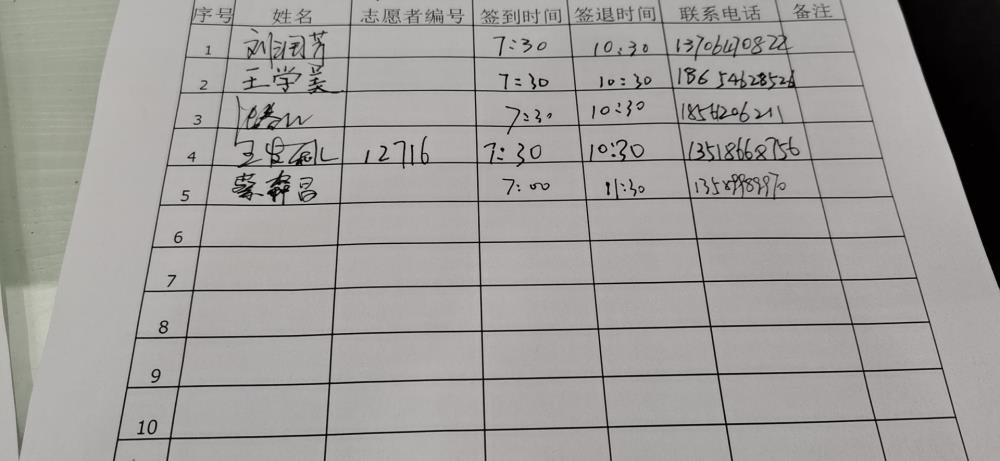 序号 姓名 志愿者编号 签到时间 签退时间 联系电话 备注
1 刘润芳 7:30 10:30 13706470822
2 王学美 7:30 10:30 18654628526
3 7:30 10:30 18561206211
4 12716 7:30 10:30 13518668756
5 7:00 11:30
6
7
8
9
10